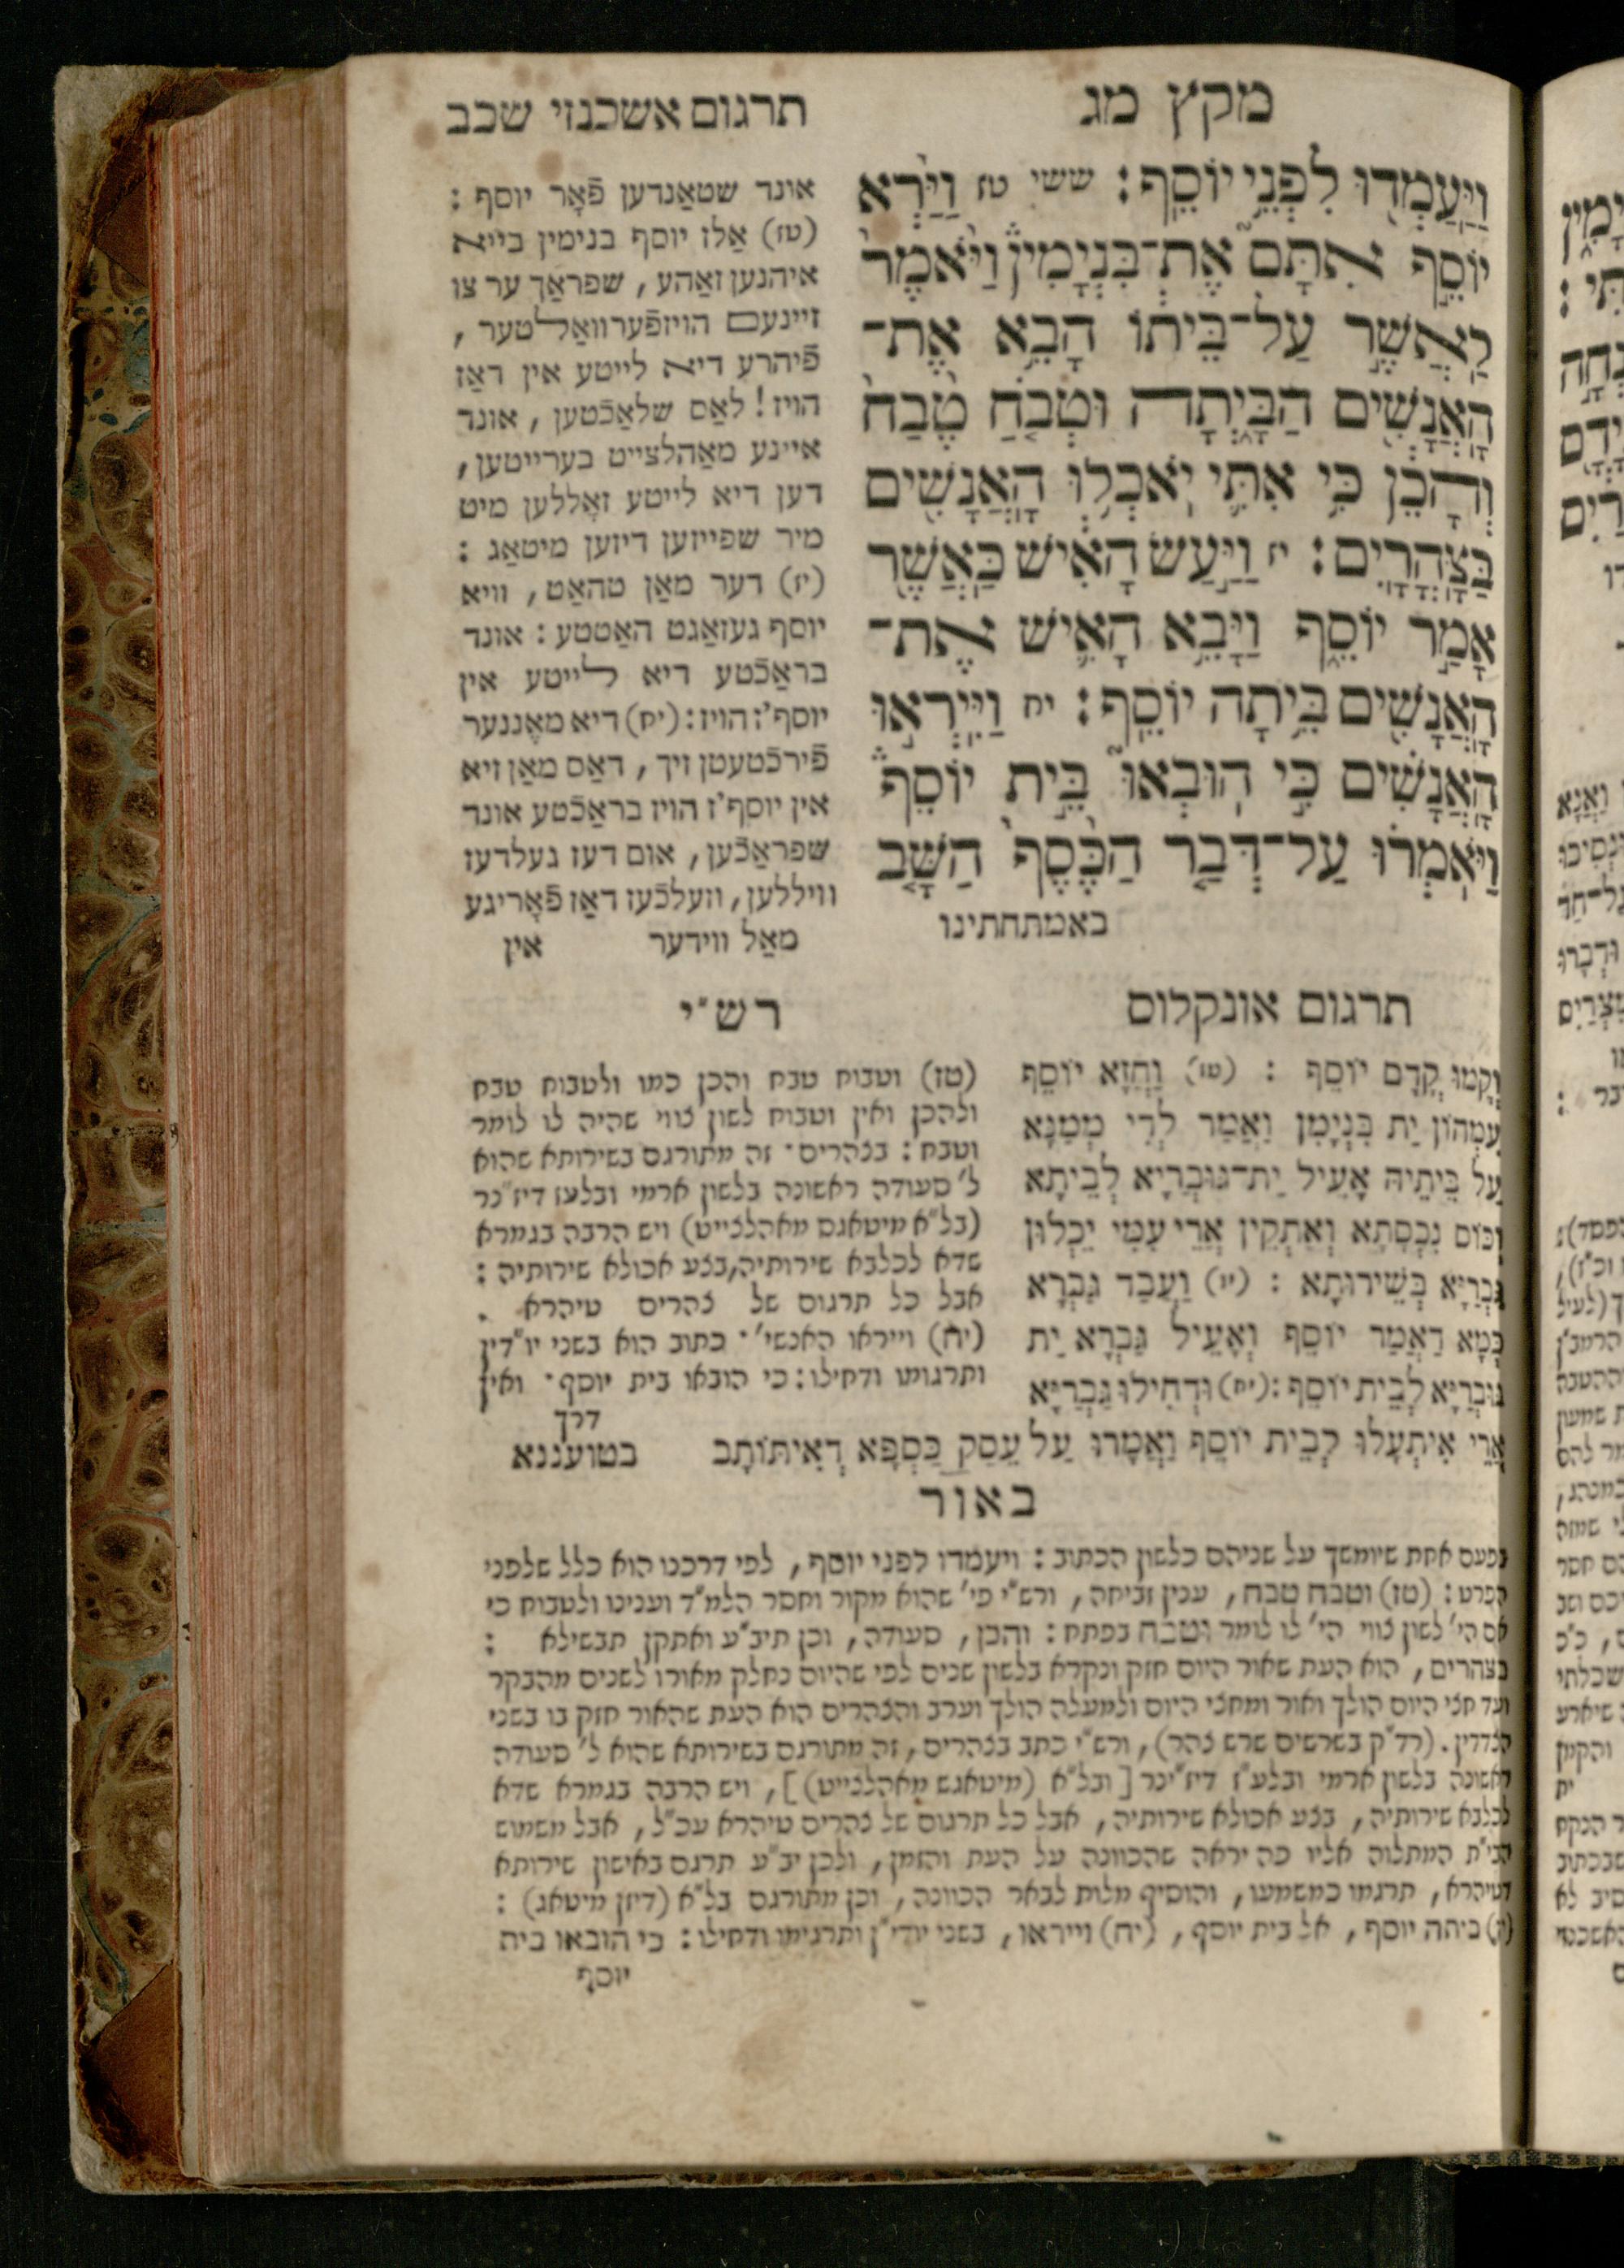 מקץ מג
תרגום אשכנזי שכב
וַיַּעַמְדוּ לִפְנֵי יוֹסֵף׃ ששי טז וַיַּרְא
יוֹסֵף אִתָּם אֶת־בִּנְיָמִין וַיֹּאמֶר
לַאֲשֶׁר עַל־בֵּיתוֹ הָבֵא אֶת־
הָאֲנָשִׁים הַבָּיְתָה וּטְבֹחַ טֶבַח
וְהָכֵן כִּי אִתִּי יֹאכְלוּ הָאֲנָשִׁים
בַּצָּהֳרָיִם׃ יז וַיַּעַשׂ הָאִישׁ כַּאֲשֶׁר
אָמַר יוֹסֵף וַיָּבֵא הָאִישׁ אֶת־
הָאֲנָשִׁים בֵּיתָה יוֹסֵף׃ יח וַיִּירְאוּ
הָאֲנָשִׁים כִּי הוּבְאוּ בֵּית יוֹסֵף
וַיֹּאמְרוּ עַל־דְּבַר הַכֶּסֶף הַשָּׁב
באמתחתינו
אונד שטאַנדען פֿאָר יוסף :
(טז) אַלז יוסף בנימין בייא
איהנען זאַהע, שפראַך ער צו
זיינעם הויזפֿערוואַלטער,
פֿיהרע דיא לייטע אין דאַז
הויז! לאַס שלאַכֿטען, אונד
איינע מאַהלצייט בערייטען,
דען דיא לייטע זאָללען מיט
מיר שפייזען דיזען מיטאַג :
(יז) דער מאַן טהאַט, וויא
יוסף געזאַגט האַטטע : אונד
בראַכֿטע דיא לייטע אין
יוסף'ז הויז : (יח) דיא מאֶננער
פֿירכֿטעטן זיך, דאַס מאַן זיא
אין יוסף'ז הויז בראַכֿטע אונד
שפראַכֿען, אום דעז געלדעז
וויללען, וועלכֿעז דאַז פֿאָריגע
מאַל ווידער אין
תרגום אונקלוס
וְקָמוּ קֳדָם יוֹסֵף : (טז) וַחֲזָא יוֹסֵף
עִמְּהוֹן יַת בִּנְיָמִן וַאֲמַר לְדִי מְמַנָּא
עַל בֵּיתֵיהּ אָעֵיל יַת־גּוּבְרַיָּא לְבֵיתָא
וְכוֹס נִכְסָתָא וְאַתְקֵין אֲרֵי עִמִּי יֵכְלוּן
גּוּבְרַיָּא בְּשֵׁירוּתָא : (יז) וַעֲבַד גַּבְרָא
כְּמָא דַאֲמַר יוֹסֵף וְאָעֵיל גַּבְרָא יַת
גּוּבְרַיָּא לְבֵית יוֹסֵף : (יח) וּדְחִילוּ גַּבְרַיָּא
אֲרֵי אִיתְעָלוּ לְבֵית יוֹסֵף וַאֲמָרוּ עַל עֵסַק כַּסְפָּא דְאִיתּוֹתַב בטועננא
רש"י
(טז) וטבוח טבח והכן כמו ולטבוח טבח
ולהכן ואין וטבוח לשון צווי שהיה לו לומר
וטבח : בצהרים · זה מתורגם בשירותא שהוא
ל' סעודה ראשונה בלשון ארמי ובלעז דיז"נר
(בל"א מיטאגס מאהלצייט) ויש הרבה בגמרא
שדא לכלבא שירותיה, בצע אכולא שירותיה :
אבל כל תרגום של צהרים טיהרא .
(יח) וייראו האנשי' · כתוב הוא בשני יו"דין
ותרגומו ודחילו : כי הובאו בית יוסף · ואין
דרך
באור
בפעם אחת שיומשך על שניהם כלשון הכתוב : ויעמדו לפני יוסף, לפי דרכנו הוא כלל שלפני
הפרט : (טז) וטבח טבח, ענין זביחה, ורש"י פי' שהוא מקור וחסר הלמ"ד וענינו ולטבוח כי
אם הי' לשון צווי הי' לו לומר וטבח בפתח : והכן, סעודה, וכן תיב"ע ואתקן תבשילא :
בצהרים, הוא העת שאור היום חזק ונקרא בלשון שנים לפי שהיום נחלק מאורו לשנים מהבקר
ועד חצי היום הולך ואור ומחצי היום ולמעלה הולך וערב והצהרים הוא העת שהאור חזק בו בשני
הצדדין. (רד"ק בשרשים שרש צהר), ורש"י כתב בצהרים, זה מתורגם בשירותא שהוא ל' סעודה
ראשונה בלשון ארמי ובלע"ז דיז"ינר [ובל"א (מיטאגש מאהלצייט)], ויש הרבה בגמרא שדא
לכלבא שירותיה, בצע אכולא שירותיה, אבל כל תרגום של צהרים טיהרא עכ"ל, אבל משמוש
הבי"ת המתלוה אליו פה יראה שהכוונה על העת והזמן, ולכן יב"ע תרגם באישון שירותא
דטיהרא, תרגמו כמשמעו, והוסיף מלות לבאר הכוונה, וכן מתורגם בל"א (דיזן מיטאג) :
ביתה יוסף, אל בית יוסף, (יח) וייראו, בשני יודי"ן ותרגומו ודחילו : כי הובאו בית
יוסף